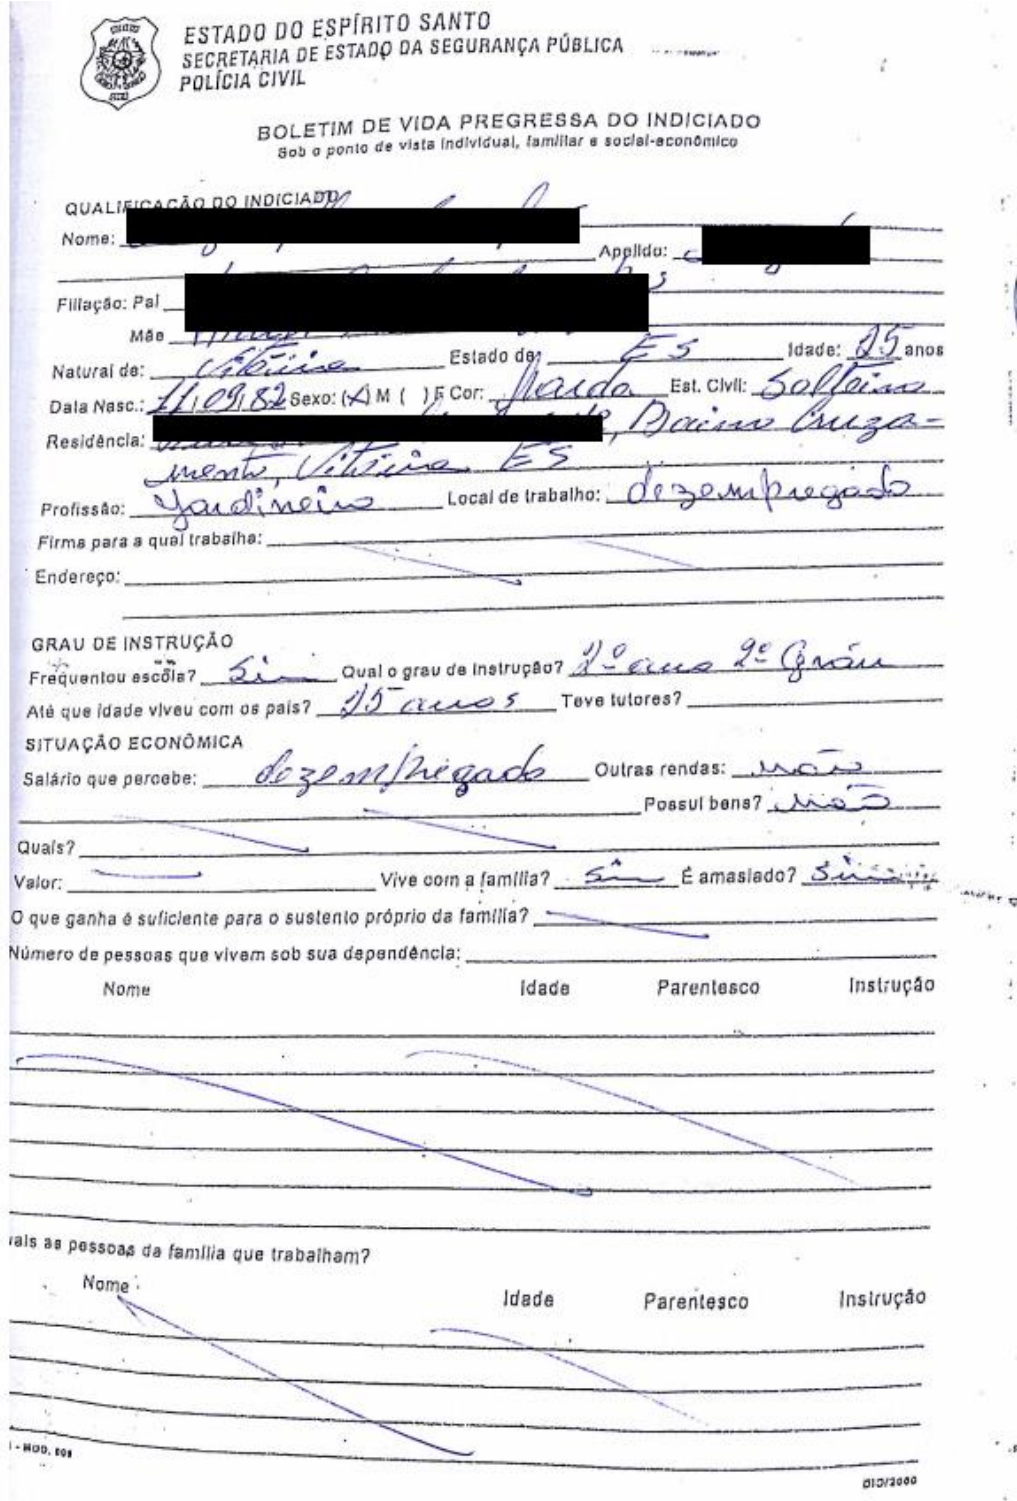 ESTADO DO ESPÍRITO SANTO
SECRETARIA DE ESTADO DA SEGURANÇA PÚBLICA
POLÍCIA CIVIL
BOLETIM DE VIDA PREGRESSA DO INDICIADO
Sob o ponto de vista individual, familiar e social-econômico
QUALIFICAÇÃO DO INDICIADO
Nome:
Apelido:
Filiação: Pai
Mãe
Natural de: Vitória Estado de: ES Idade: 25 anos
Data Nasc.: 11/09/82 Sexo: (X) M ( ) F Cor: Parda Est. Civil: Solteiro
Residência: , Bairro Cruza-
mento, Vitória ES
Profissão: Jardineiro Local de trabalho: dezempregado
Firma para a qual trabalha:
Endereço:
GRAU DE INSTRUÇÃO
Frequentou escola? Sim Qual o grau de instrução? 2º ano 2º Gráu
Até que idade viveu com os pais? 25 anos Teve tutores?
SITUAÇÃO ECONÔMICA
Salário que percebe: dezempregado Outras rendas: não
Possui bens? não
Quais?
Valor: Vive com a família? Sim É amasiado? Sim
O que ganha é suficiente para o sustento próprio da família?
Número de pessoas que vivem sob sua dependência:
Nome Idade Parentesco Instrução
uais as pessoas da família que trabalham?
Nome Idade Parentesco Instrução
- MOD. 608